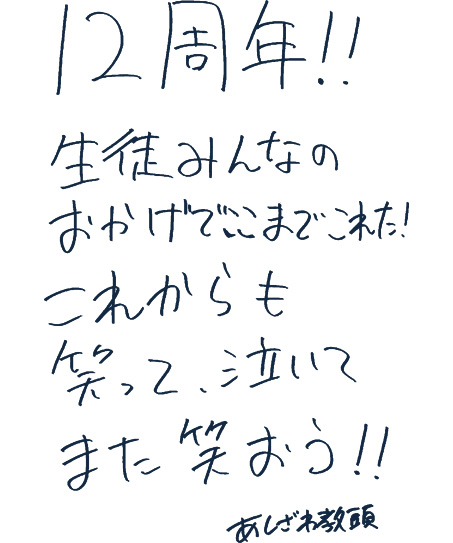 12周年!!
生徒みんなの
おかげでここまでこれた!
これからも
笑って、泣いて
また笑おう!!
あしざわ教頭